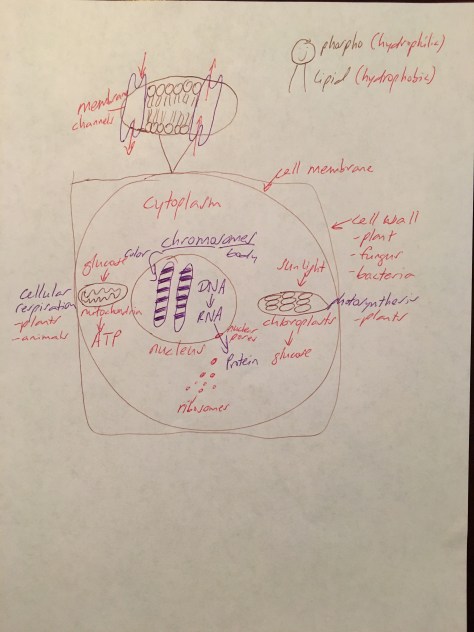 phospho (hydrophilic)
Lipid (hydrophobic)
membrane
channels
cell membrane
cytoplasm
cell wall
-plant
-fungus
-bacteria
chromosomes
color
body
glucose
sunlight
cellular
respiration
-plants
-animals
mitochondria
ATP
DNA
RNA
nuclear
pores
Protein
nucleus
ribosomes
chloroplasts
photosynthesis
-plants
glucose